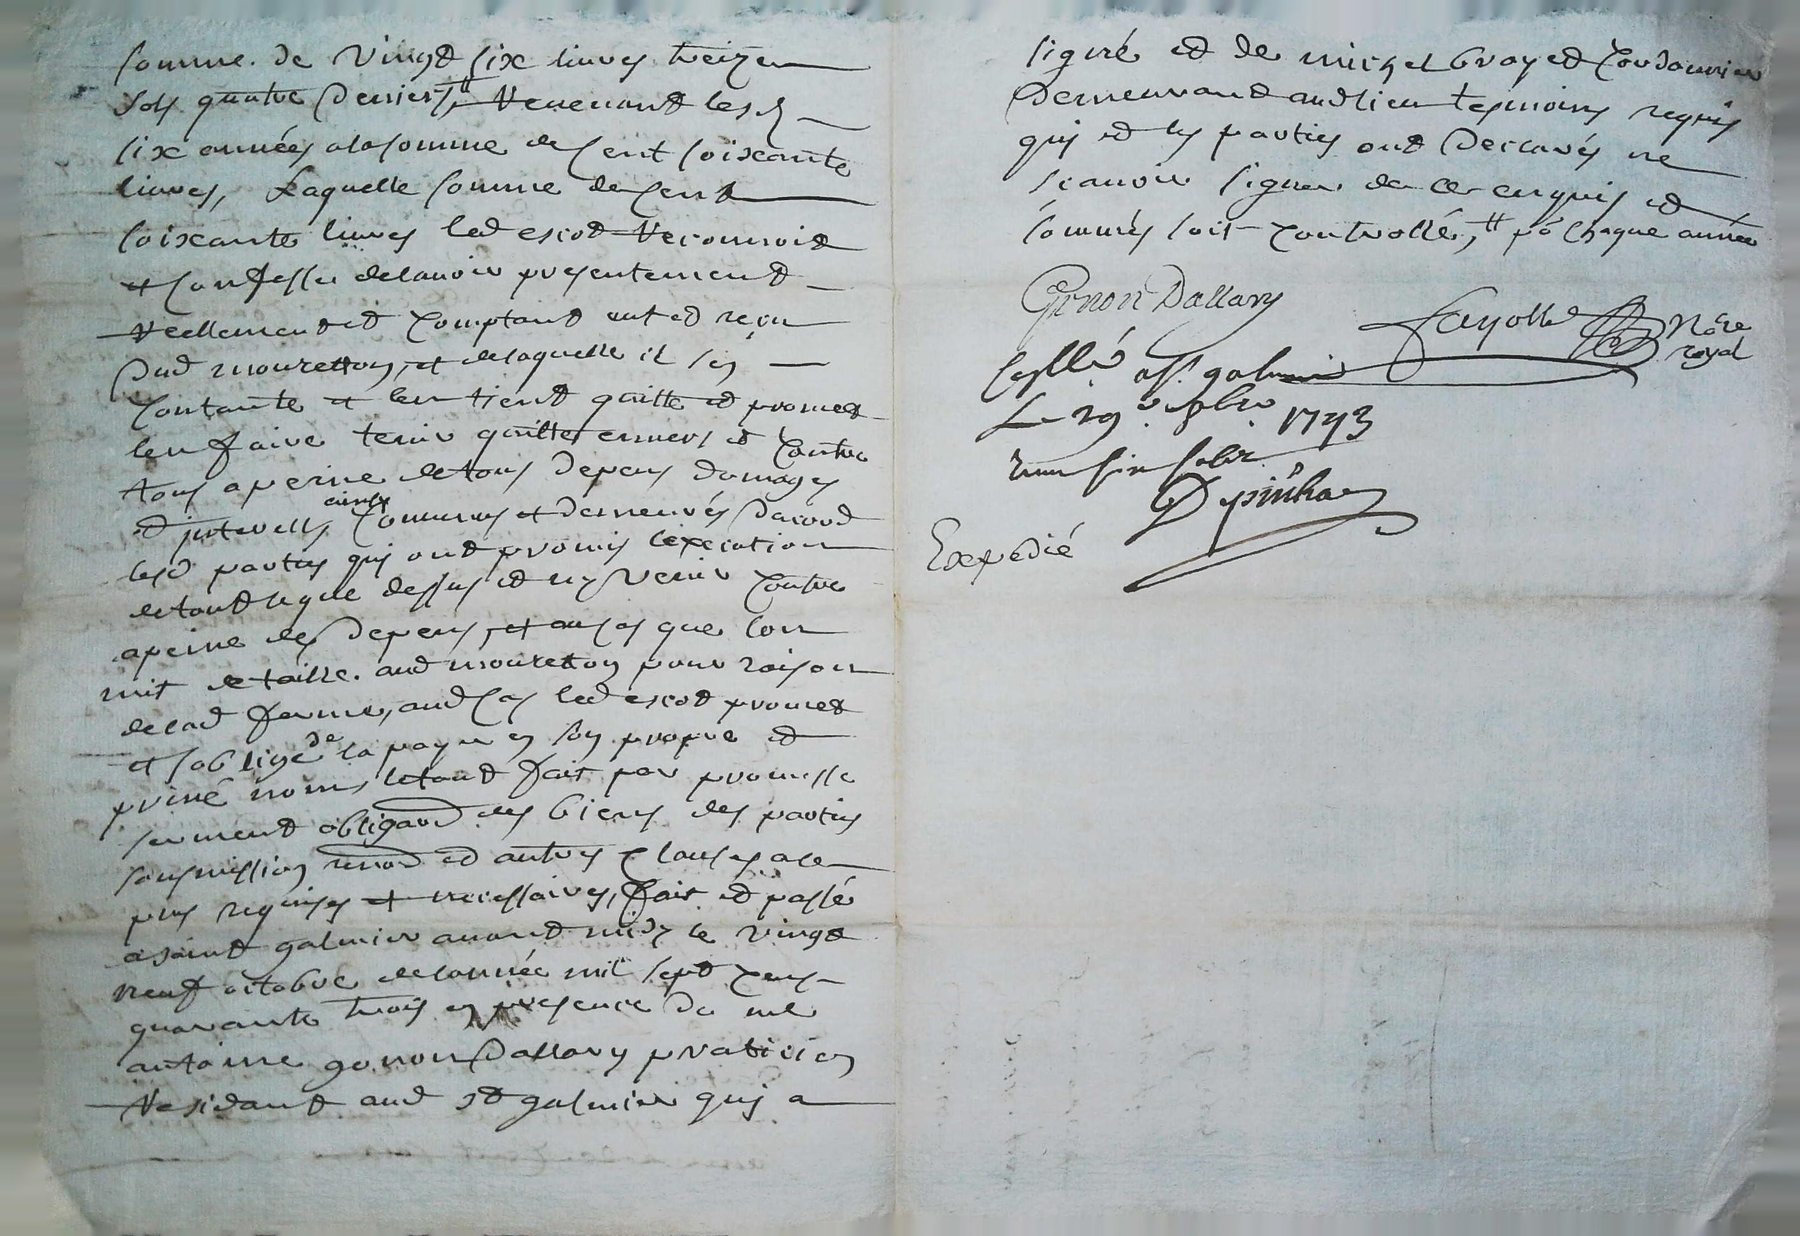 somme de vingt six livres treize
sols quatre deniers ╫ revenant lesd
six années a la somme de cent soixante
livres, Laquelle somme de cent
soixante livres led escot reconnoit
et confesse delavoir presentement
reellement et comptant eut et reçu
dud mouretton, et de laquelle il sen
contante et len tient quitte et promet
len faire tenir quitte envers et contre
tous a peine de tous depens domages
et jnterests, ainsy convenus et demeurés dacord
lesd parties qui ont promis lexecution
de tout ce que dessus et ny venir contre
a peine des depens, et au cas que lon
mit de taille aud mouretton pour raison
de lad ferme, aud cas led escot promet
et soblige de la payer en son propre et
privé nom, le tout fait par promesse
serment obligaon des biens des parties
soumission renon et autres clauses a ce
plus requises et necessaires, fait et passé
a saint galmier avant midy le vingt
neuf octobre de lannée mil sept cens
quarante trois en presence de me
antoine gonon Dallary praticien
residant aud st galmier qui a
signé et de michel broyet cordonnier
demeurant audlieu tesmoins requis
qui et les parties ont declarés ne
scavoir signer de ce enquis et
sommés soit controllé, ╫ po chaque année
Gonon Dallary
fayolle Nore
royal
Cllé a st galmier
Le 29e 8bre 1743
Depinhac
Expedié